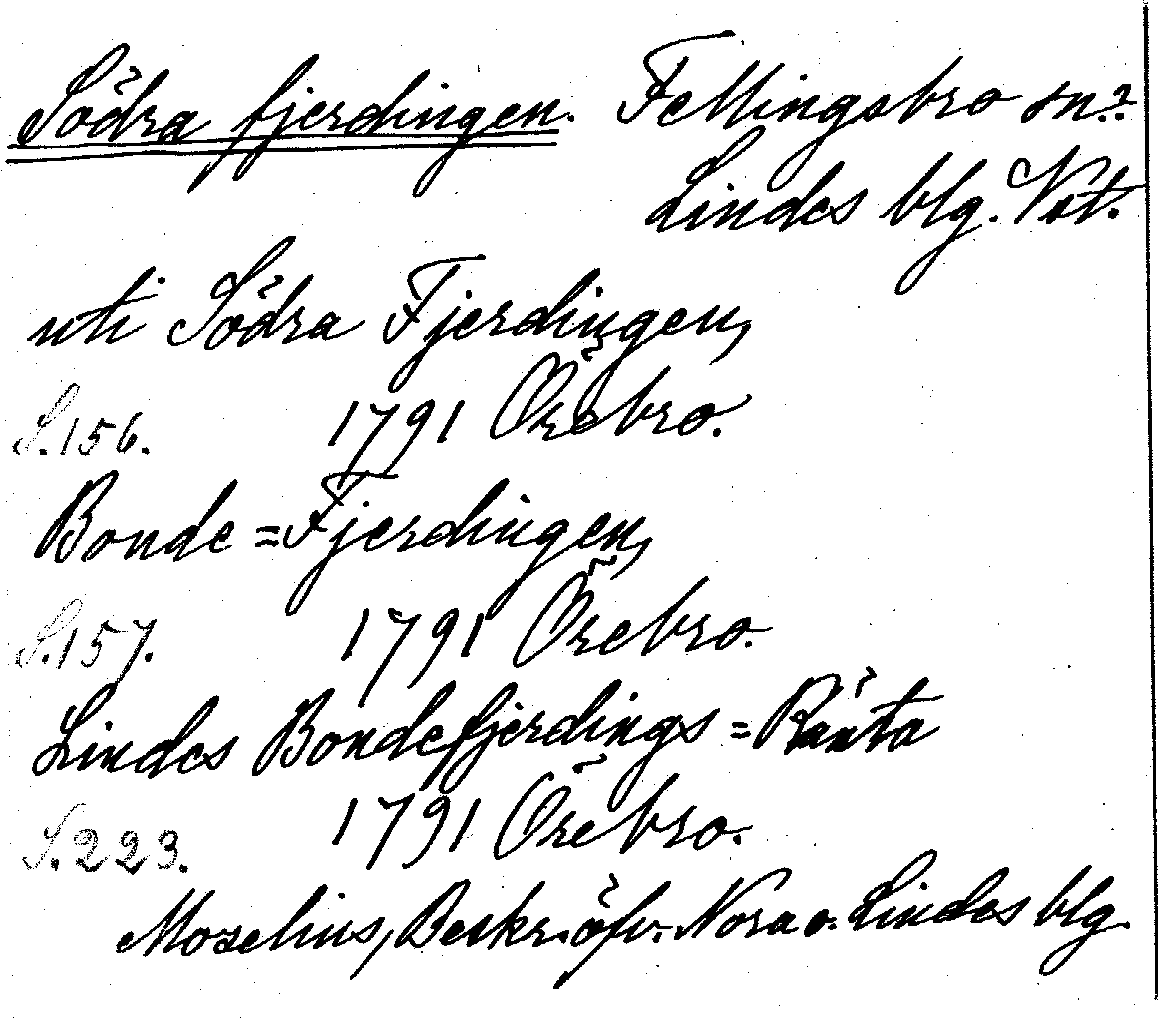 Södra fjerdingen. Fellingsbro sn?
Lindes blg. Vst.
uti Södra Fjerdingen,
S.156. 1791 Örebro.
Bonde=Fjerdingen,
S.157. 1791 Örebro.
Lindes Bondefjerdings=Ränta
S.223. 1791 Örebro.
Moselius, Beskr. öfv. Nora o. Lindes blg.